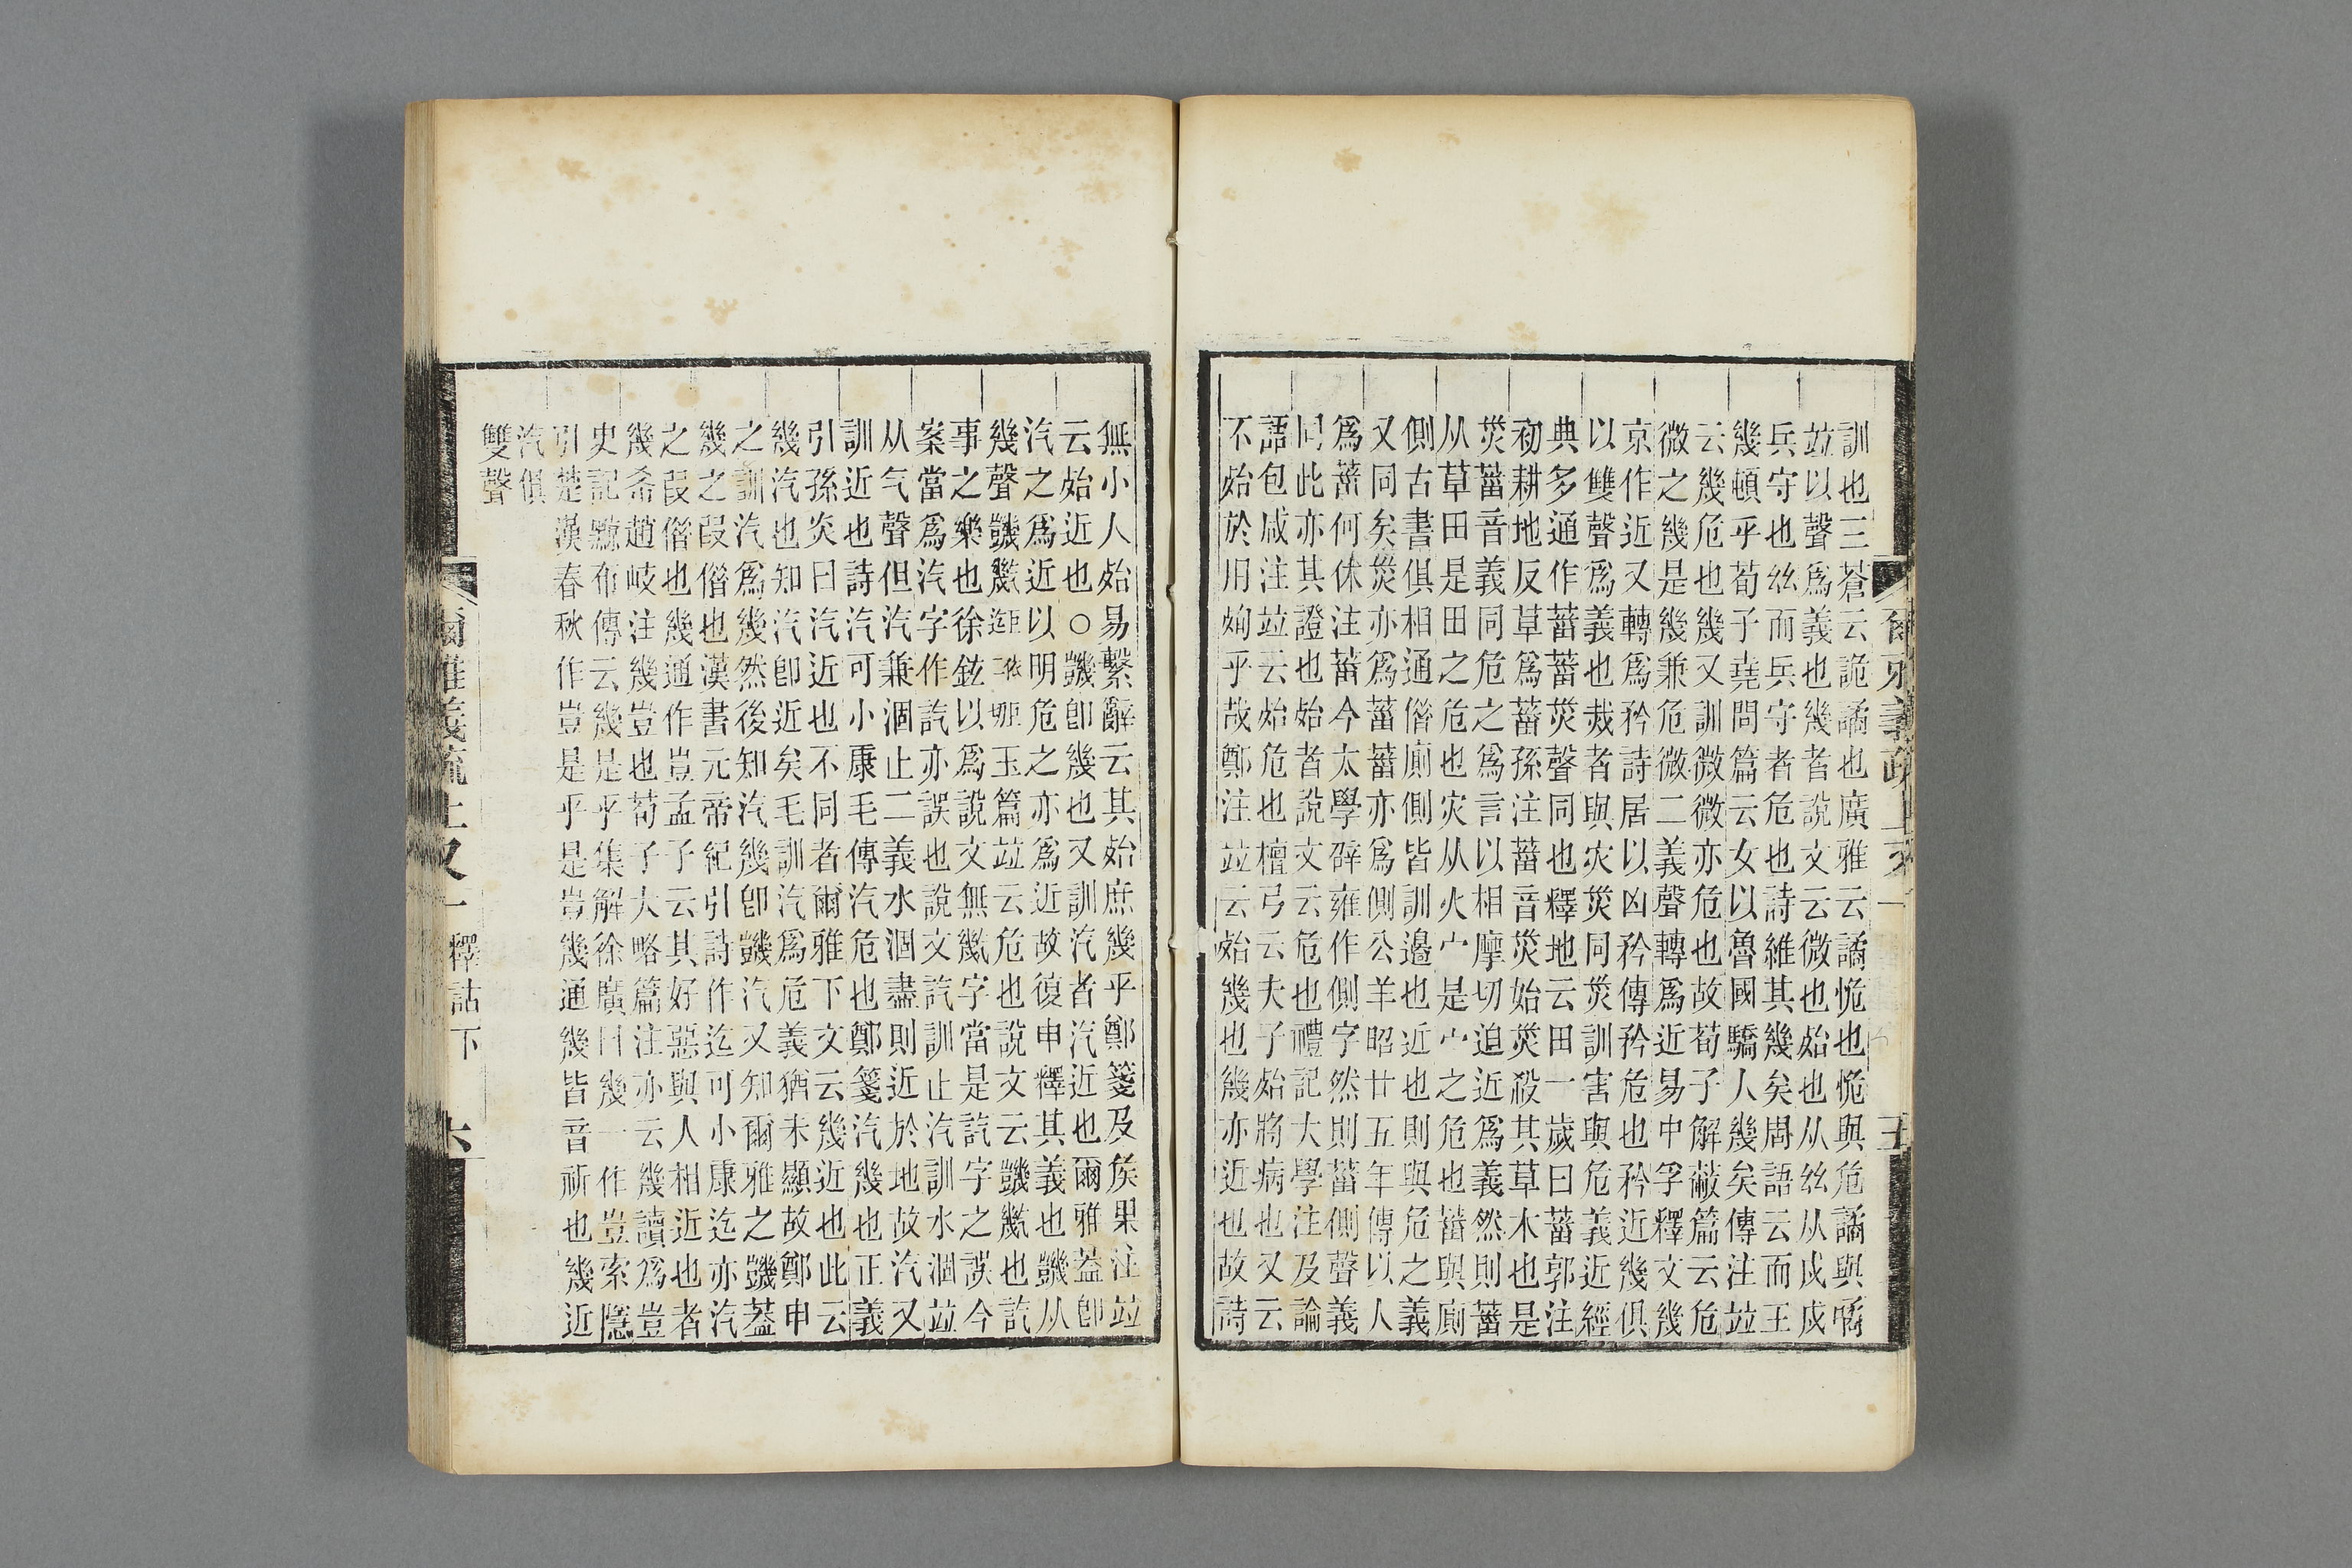 訓也三蒼云詭譎也廣雅云譎恑也恑與危譎與噊
竝以聲爲義也幾者說文云微也殆也从𢆶从戍戍
兵守也𢆶而兵守者危也詩維其幾矣周語云而王
幾頓乎荀子堯問篇云女以魯國驕人幾矣傳注竝
云幾危也幾又訓微微亦危也故荀子解蔽篇云危
微之幾是幾兼危微二義聲轉爲近易中孚釋文幾
京作近又轉爲矜詩居以凶矜傳矜危也矜近幾俱
以雙聲爲義也烖者與灾災同災訓害與危義近經
典多通作菑菑災聲同也釋地云田一歲曰菑郭注
初耕地反草爲菑孫注菑音災始災殺其草木也是
災菑音義同危之爲言以相摩切迫近爲義然則菑
从草田是田之危也灾从火宀是宀之危也菑與廁
側古書俱相通偕廁側皆訓邊也近也則與危之義
又同矣災亦爲菑菑亦爲側公羊昭廿五年傳以人
爲菑何休注菑今太學辟雍作側字然則菑側聲義
同此亦其證也殆者說文云危也禮記大學注及論
語包咸注竝云殆危也檀弓云夫子殆將病也又云
不殆於用殉乎哉鄭注竝云殆幾也幾亦近也故詩
爾雅義疏上又一 五
無小人殆易繫辭云其殆庶幾乎鄭箋及侯果注竝
云殆近也○䜱卽幾也又訓汽者汽近也爾雅蓋卽
汽之爲近以明危之亦爲近故復申釋其義也䜱从
幾聲䜱玉篇竝云危也說文云䜱也訖
事之樂也徐鉉以爲說文無字當是訖字之誤今
案當爲汽字作訖亦誤也說文訖訓止汽訓水涸竝
从气聲但汽兼涸止二義水涸盡則近於地故汽又
訓近也詩汽可小康毛傳汽危也鄭箋汽幾也正義
引孫炎曰汽近也不同者爾雅下文云幾近也此云
幾汽也知汽卽近矣毛訓汽爲危義猶未顯故鄭申
之訓汽爲幾然後知汽幾卽䜱汽又知爾雅之䜱蓋
幾之叚偕也漢書元帝紀引詩作迄可小康迄亦汽
之叚偕也幾通作豈孟子云其好惡與人相近也者
幾希趙岐注幾豈也荀子大略篇注亦云幾讀爲豈
史記黥布傳云幾是乎集解徐廣曰幾一作豈索隱
引楚漢春秋作豈是乎是豈幾通幾皆音祈也幾近
汽俱
雙聲
爾雅義疏上又一 釋詁下 六